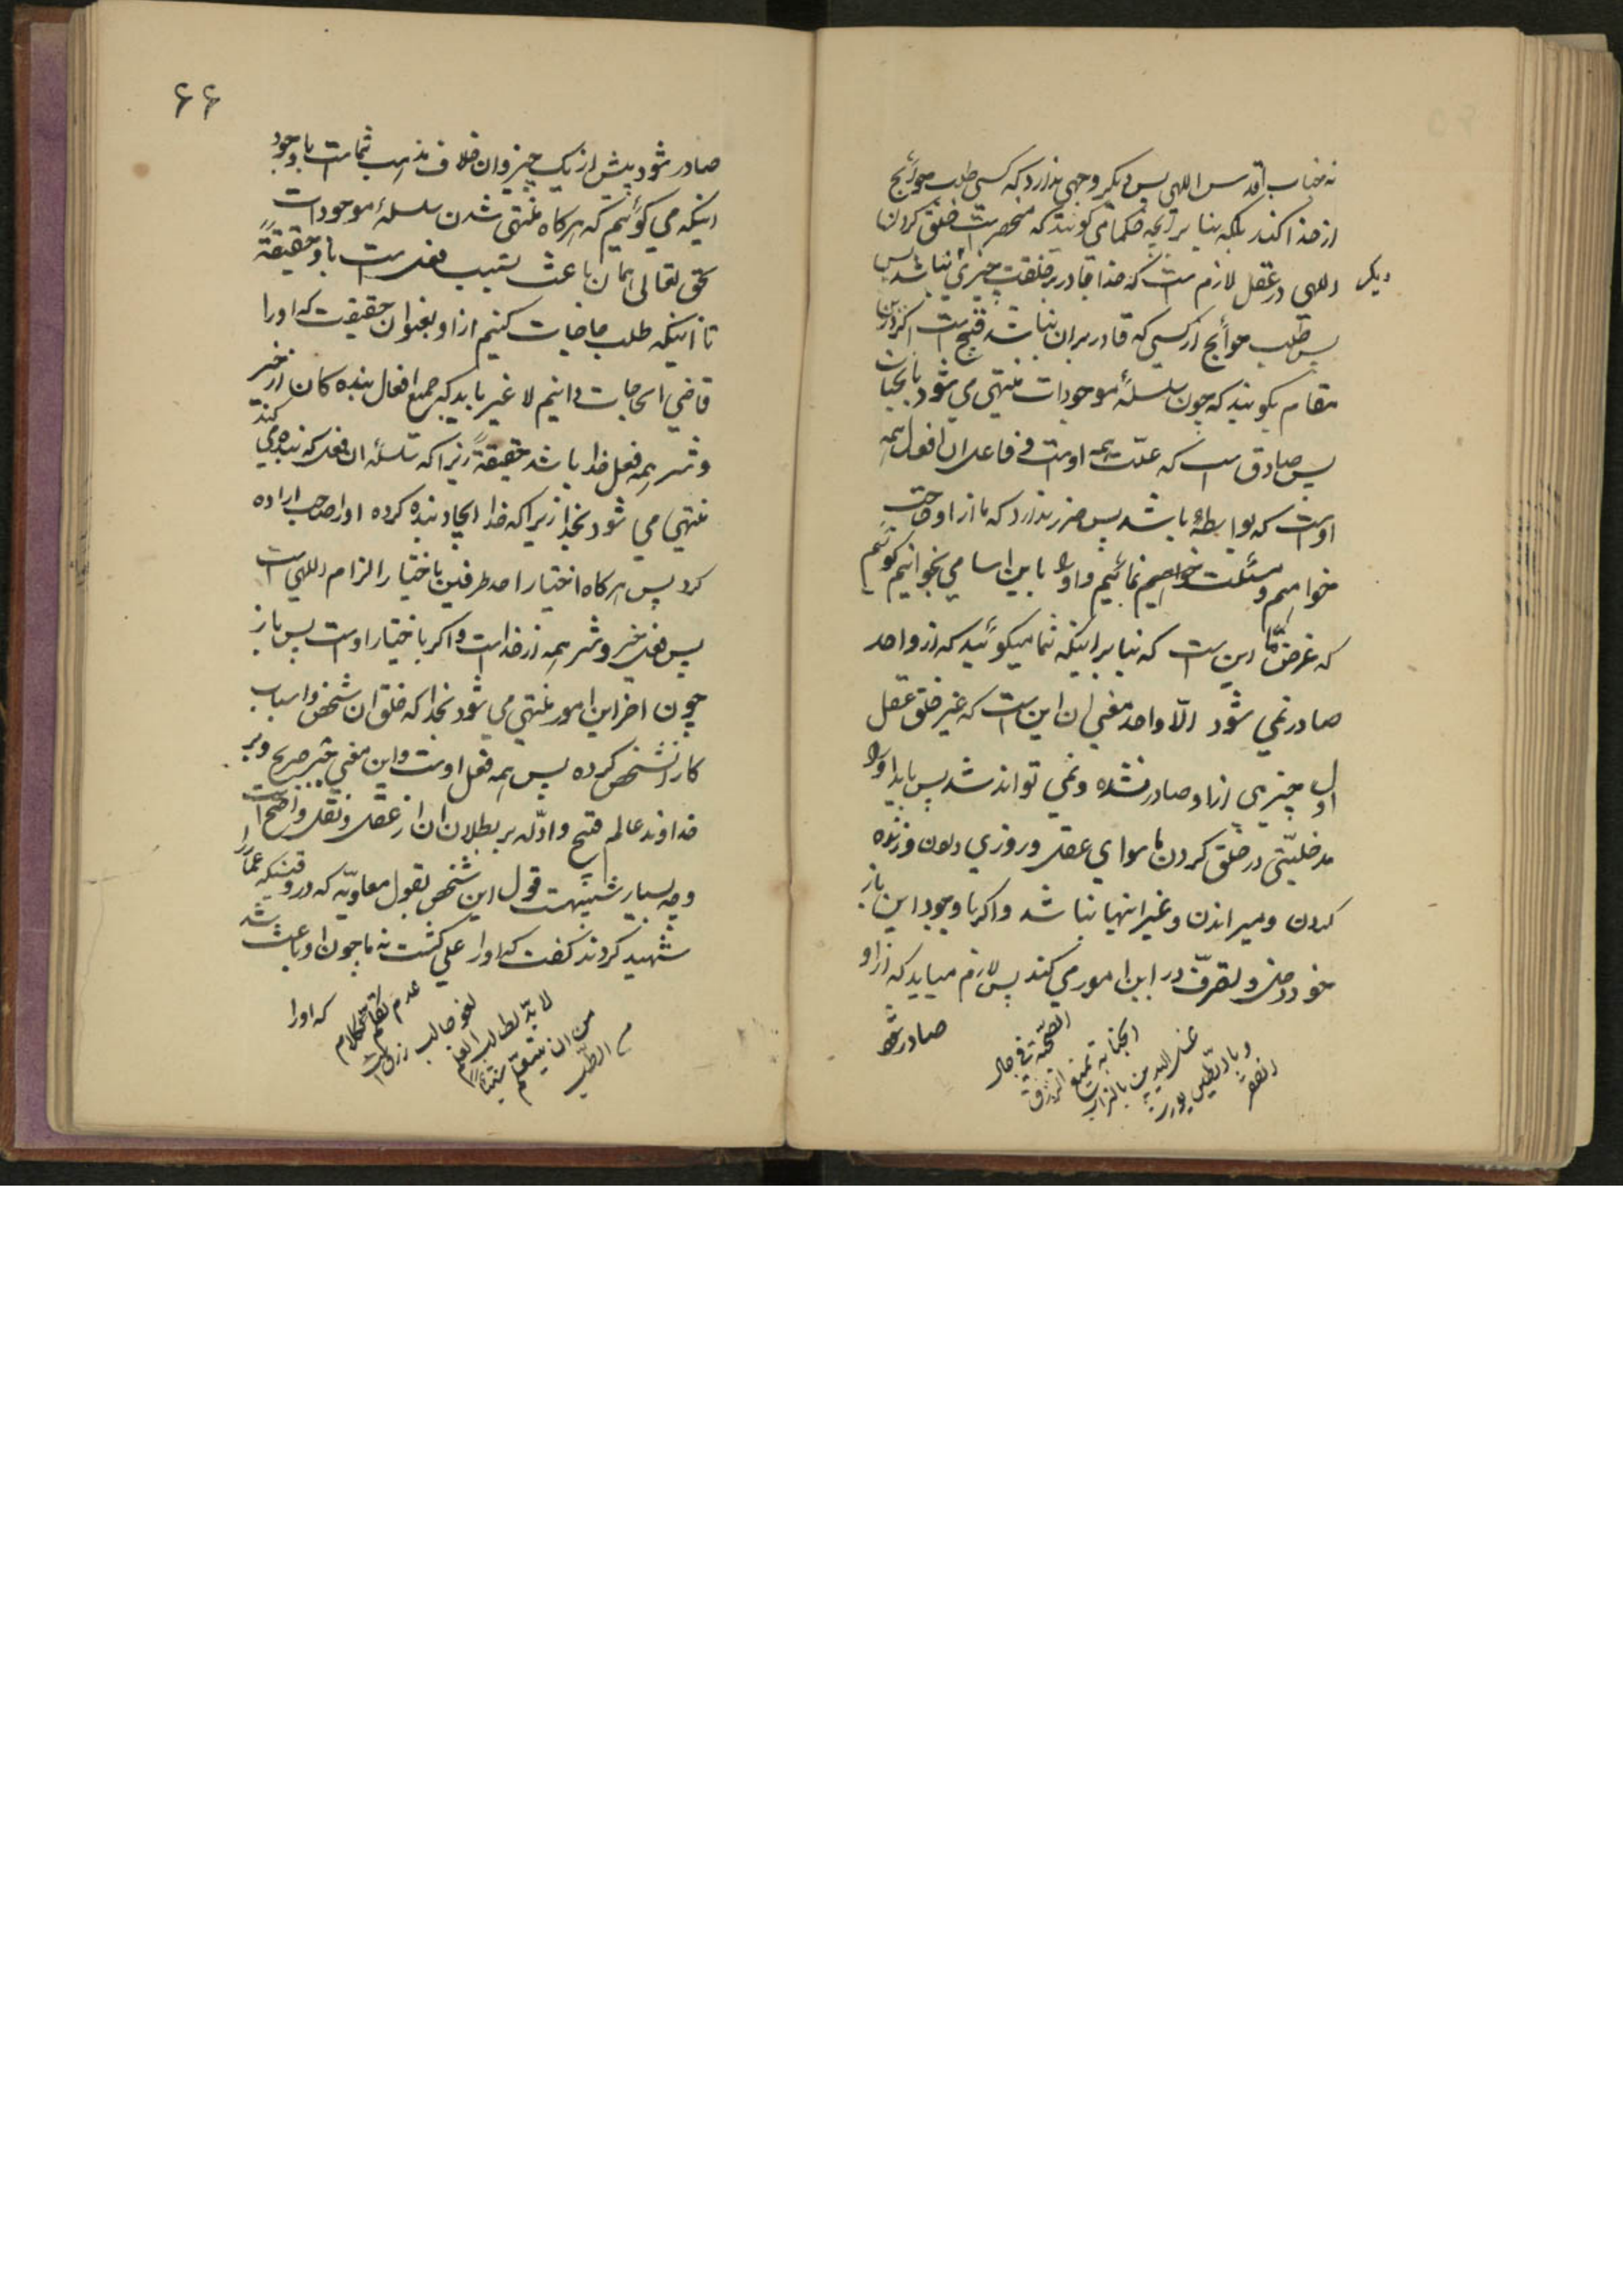 نه جناب اقدس الهی پس دیکر وجهی ندارد که کسی طلب حوائج
از خدا کند بلکه بنا بر آنچه حکما می کویند که منحصر است خلق کردن
الهی در عقل لازم است که خدا قادر بر خلقت چیزی نباشد پس
دیکر
پس طلب حوائج از کسی که قادر بر ان نباشد قبیح است اکر در این
مقام بکویند که چون سلسلۀ موجودات منتهی می شود بانجناب
پس صادق است که علت همه اوست و فاعل ان افعال همه
اوست که بواسطه باشد پس ضرر ندارد که ما از او حاجت
خواهیم و مسئلت نمائیم و او را باین اسامی بخوانیم کوئیم
که غرض ما این است که بنا بر اینکه شما میکوئید که از واحد
صادر نمی شود الّا واحد معنی ان این است که غیر خلق عقل
اول چیزی از او صادر نشده و نمی تواند شد پس باید او را
مدخلیّتی در خلق کردن ما سوای عقل و روزی دادن و زنده
کردن و میراندن و غیر اینها نباشد و اکر با وجود این باز
خود دخل و تصرّف در این امور می کند پس لازم میاید که از او
صادر شود
الجنابة تمنع الرزق
غسل الیدین بالتراب
یورث الفقر
۶۶
صادر شود بیش از یک چیز و ان خلاف مذهب شماست با وجود
اینکه می کوئیم که هرکاه منتهی شدن سلسلۀ موجودات
بحق تعالی همان باعث نسبت فعل است باو حقیقةً
تا اینکه طلب حاجات کنیم از او بعنوان حقیقت که او را
قاضی الحاجات دانیم لا غیر باید که جمیع افعال بنده کان از خیر
و شر همه فعل خدا باشد حقیقةً زیرا که سلسلۀ ان فعل که بنده می کند
منتهی می شود بخدا زیرا که خدا ایجاد بنده کرده او را صاحب اراده
کرد پس هرکاه اختیار احد طرفین باختیار الزام الهی است
پس فعل خیر و شر همه از خداست و اکر باختیار اوست پس باز
چون اخر این امور منتهی می شود بخدا که خلق ان شخص و اسباب
کار انشخص کرده پس همه فعل اوست و این معنی جبر صریح و بر
خداوند عالم قبیح و ادلّه بر بطلان ان از عقل و نقل واضح است
و چه بسیار شبیهست قول این شخص بقول معاویّه که در وقتیکه عمّار را
شهید کردند کفت که او را علی کشت نه ما چون او باعث شد
که او را
لا بدّ لطالب العلم
من ان یتعلّم شیئا
من الطبّ